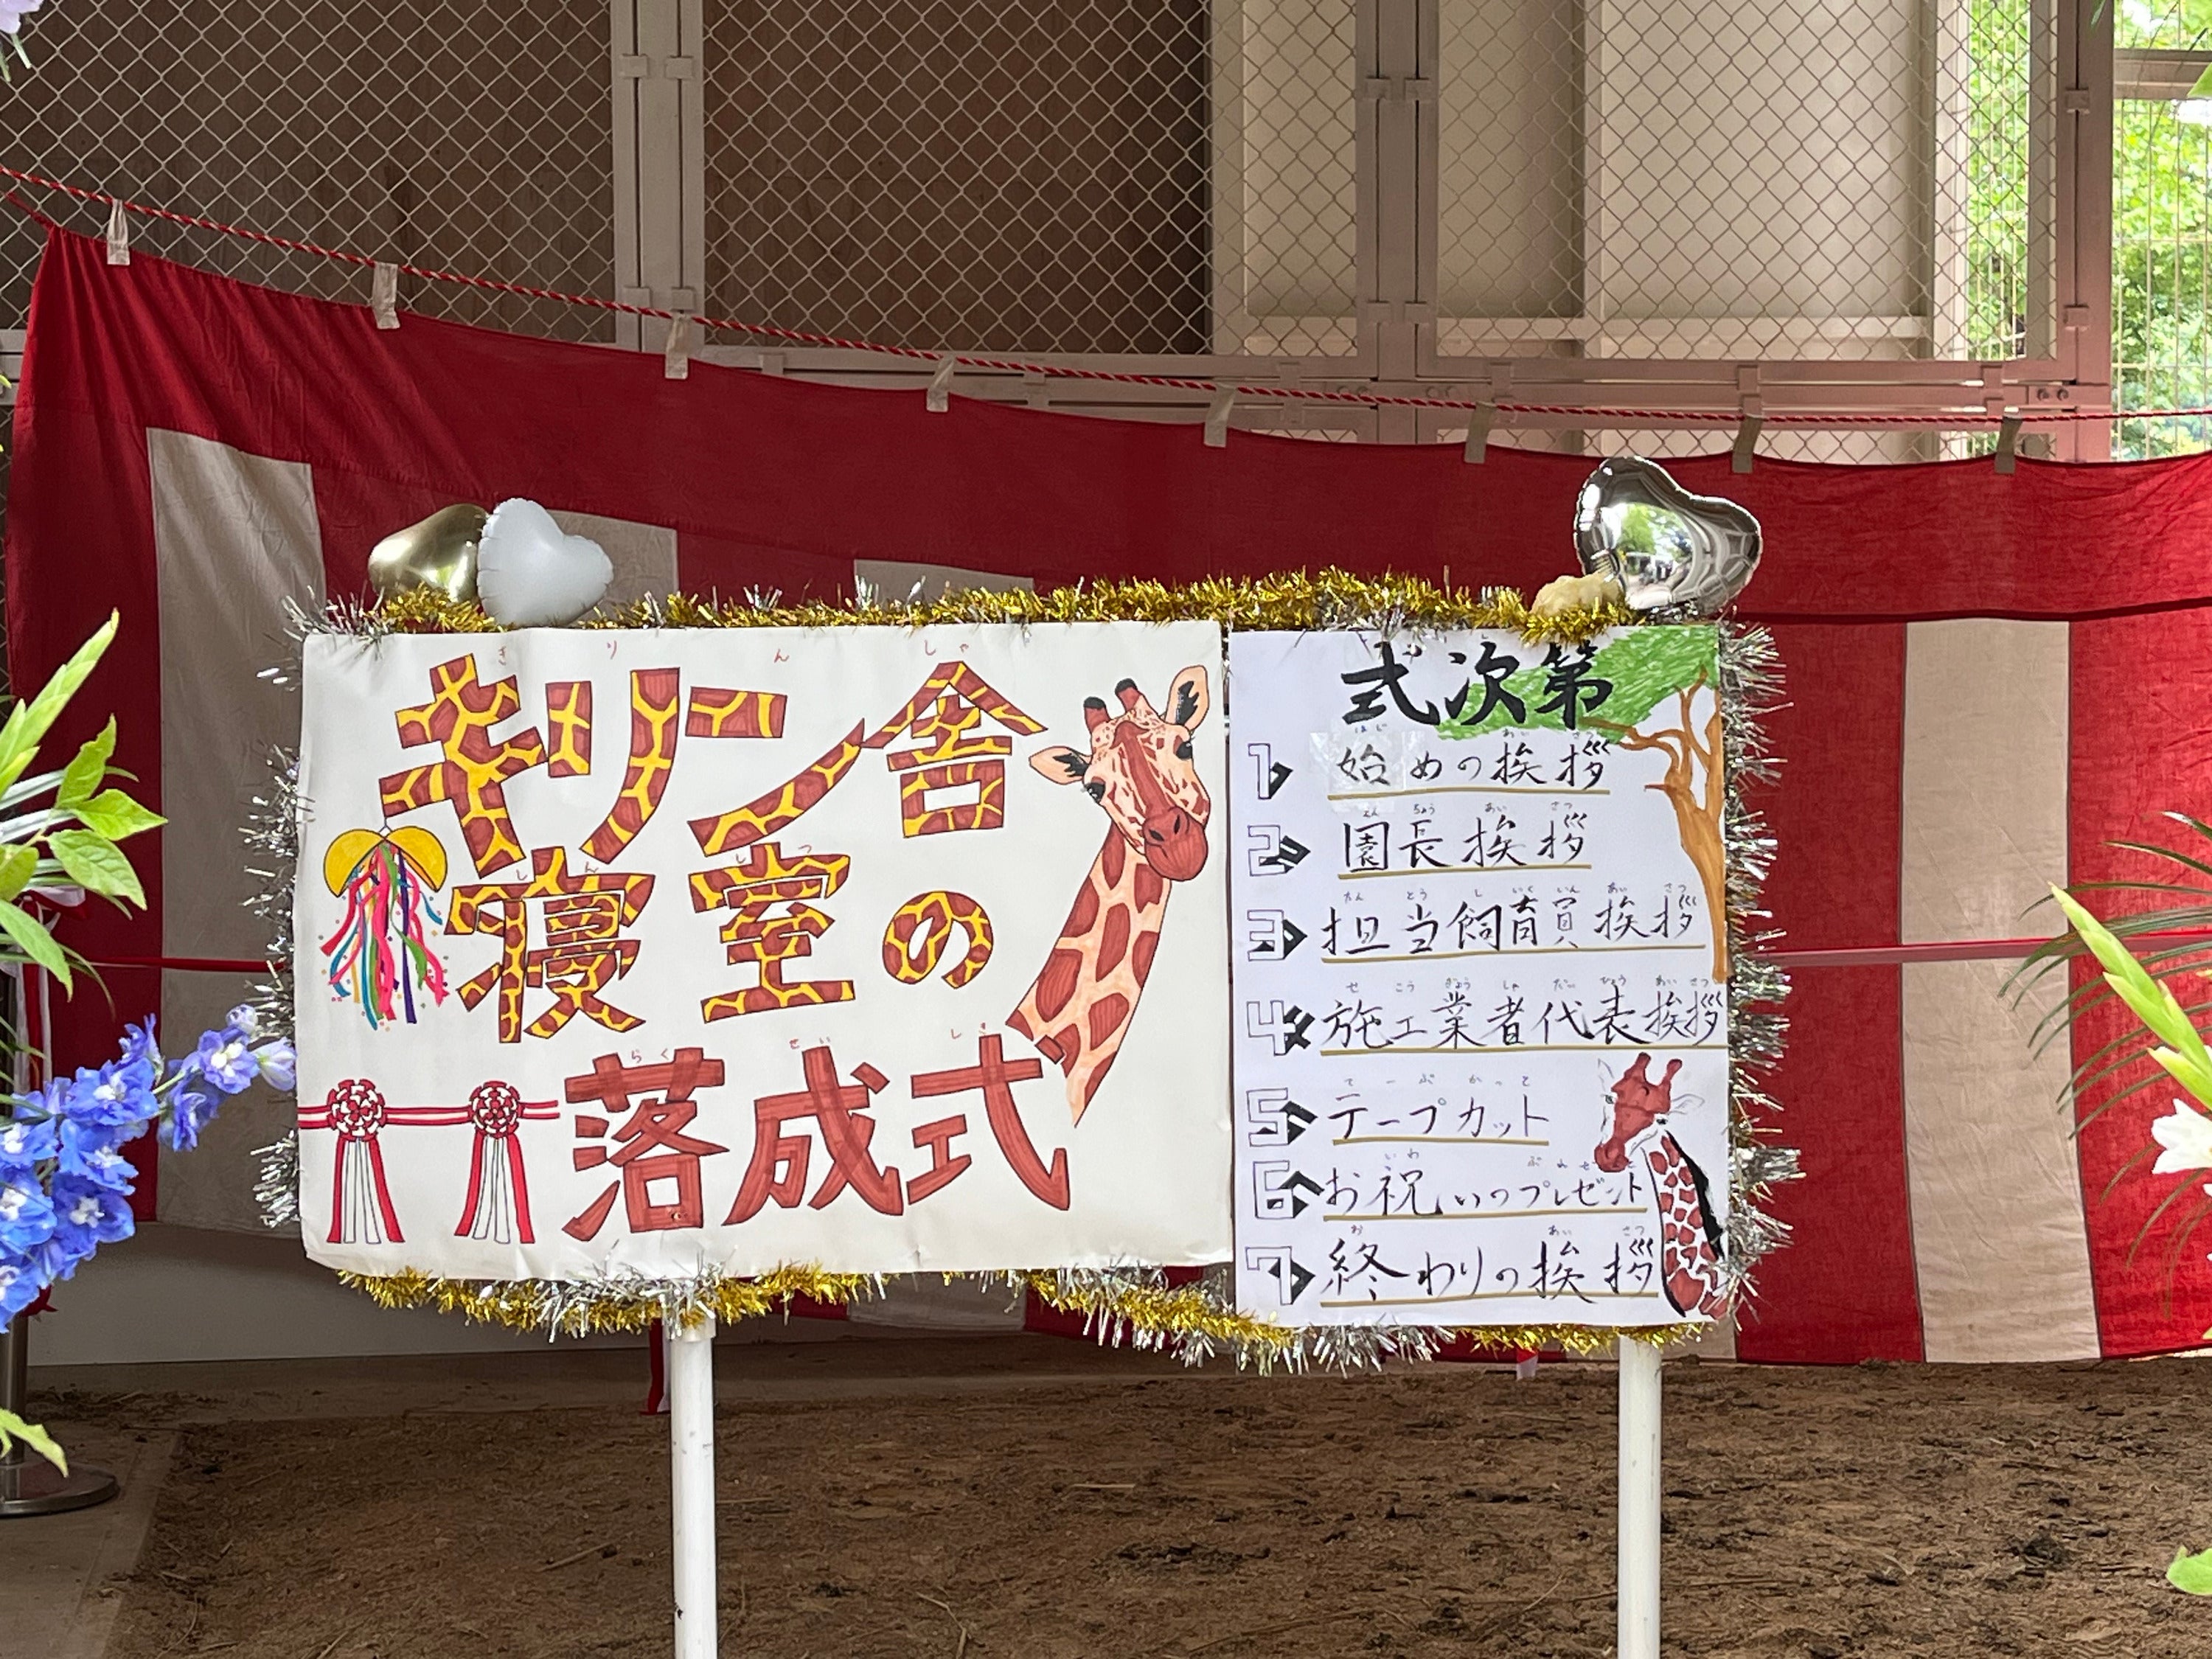 きりんしゃ
キリン舎
しんしつ
寝室の
らくせいしき
落成式
式次第
はじ あいさつ
1 始めの挨拶
えんちょうあいさつ
2 園長挨拶
たんとうしいくいんあいさつ
3 担当飼育員挨拶
せこうぎょうしゃだいひょうあいさつ
4 施工業者代表挨拶
てーぷかっと
5 テープカット
いわ ぷれぜんと
6 お祝いのプレゼント
お あいさつ
7 終わりの挨拶